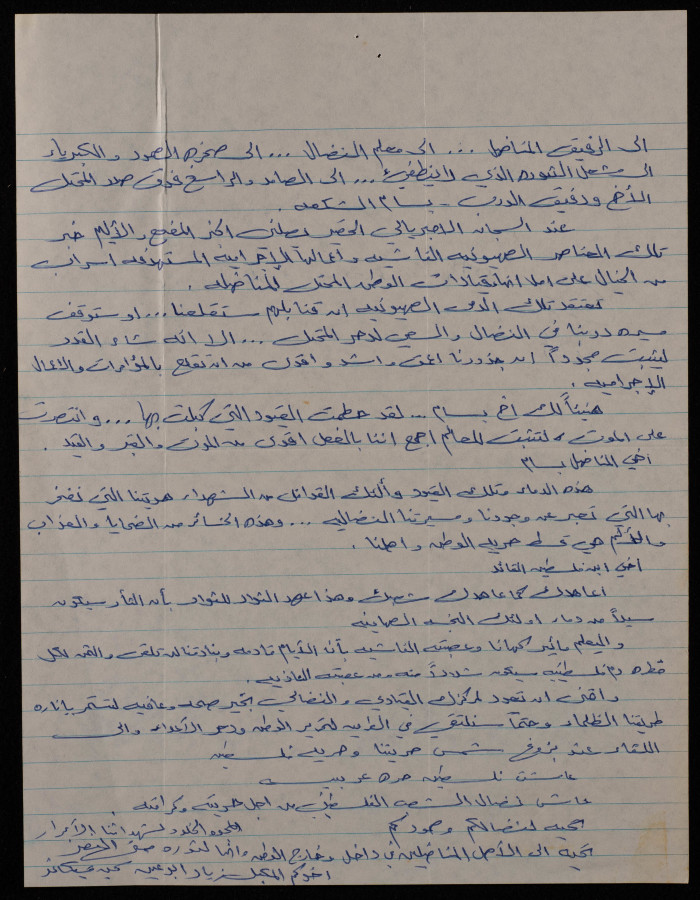 الى الرفيق المناضل ... الى معلم النضال ... الى صخرة الصمود والكبرياء
الى مشعل الثورة الذي لا ينطفئ ... الى الصامد والرابح فوق صدر المحتل
الأخ ورفيق الدرب - بسام الشكعة .
عند السجان الامبريالي الحقير وصلني الخبر المفجع والأليم خبر
تلك العناصر الصهيونية الفاشية وأعمالها الإجرامية المستهدفة اسراب
من الجبال على اهلا قيادات الوطن المحتل المناضلة .
تعتقد تلك الدمى الصهيونية ان قنابلهم ستقلعنا ... او ستوقف
مسيرة دربنا في النضال والسعي لدحر المحتل ... الا انه شاء القدر
ليثبت مجدداً ان جذورنا اعمق واشد واقوى من ان تقلع بالمؤامرات والاعمال
الإجرامية .
هنيئاً لك اخ بسام ... لقد حطمت القيود التي كبلت بها ... وانتصرت
على الموت لتثبت للعالم اجمع اننا بالفعل اقوى من الموت والقهر والقيد .
أخي المناضل بسام
هذه الدماء وتلك القيود وأولئك القوافل من الشهداء هويتنا التي نفخر
بها التي تعبر عن وجودنا ومسيرتنا النضالية ... وهذه الخسائر من الضحايا والعذاب
والألم هي قسط حرية الوطن واهلنا .
أخي ابن فلسطين القائد
اعاهدك كما عاهدك شعبك وهذا عهد الثوار للثوار بأن الثأر سيكون
سيلاً من دماء اولئك النجسة الصهاينة
وليعلم مائير كهانا وعصبته الفاشية بأن الأيام قادمة وبنادقنا لن تلقى والثمن لكل
قطرة دم فلسطينية سيكون مسدداً منه ومن عصبته الغازية .
واتمنى ان تعود لمركزك القيادي والنضالي بخير صحة وعافية لتستمر بإنارة
طريقنا الظلماء وحتماً سنلتقي في الطريق لتحرير الوطن ودحر الأعداء والى
اللقاء عند بزوغ شمس حريتنا وحرية فلسطين
عاشت فلسطين حرة عربية
عاش نضال الشعب الفلسطيني من اجل حريته وكرامته .
تحية لنضالكم وصمودكم المجد والخلود لشهدائنا الأبرار
تحية الى الأهل المناضلين في داخل وخارج الوطن وانها لثورة حتى النصر
اخوكم المعتقل زياد ابو عين سجن شيكاغو